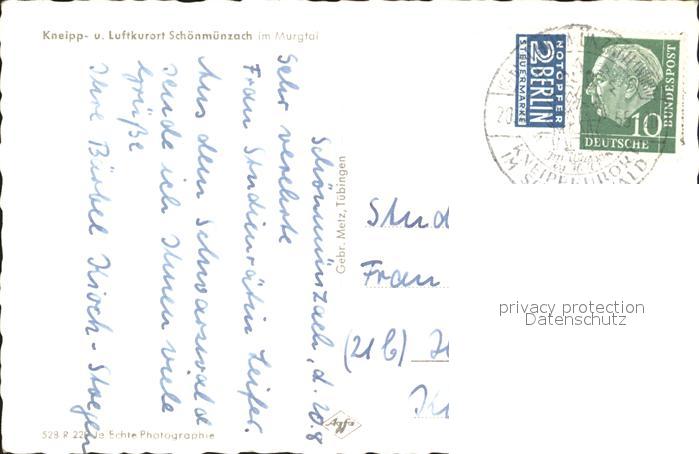 Kneipp- u. Luftkurort Schönmünzach im Murgtal
Schönmünzach, d. 20.8
Sehr verehrte
Frau Studienrätin Leifer.
Aus dem Schwarzwald
sende ich Ihnen viele
Grüße
Ihre Bärbel
528 R 22 Echte Photographie
Gebr. Metz, Tübingen
Agfa
NOTOPFER
2 BERLIN
STEUERMARKE
BUNDESPOST
10
DEUTSCHE
KNEIPPKURORT
IM
Stud
Frau
(21b)
privacy protection
Datenschutz